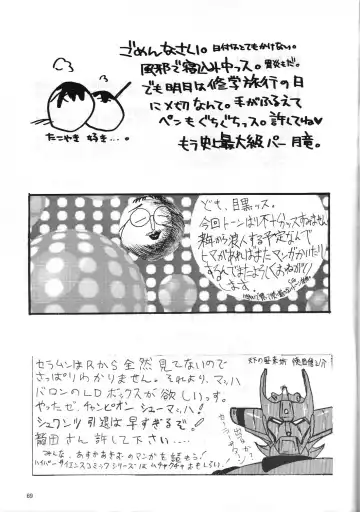 ごめんなさい。日付なとてもかけない。
風邪で寝込み中っス。胃炎もだ。
でも明日は修学旅行の日
に〆切なんて。手がふるえて
ペンもぐちぐちっス。許してね♥
もう史上最大級パー 月竜。
たこやき 好き…。
ども、目黒っス。
今回トーンばり不十分ッスすいません
来年から浪人する予定なんで
ヒマがあればまたマンガかいたり
するんでまたよろしくおねがい
します。
セラムンはRから全然見てないので
さっぱりわかりません。それより、マッハ
バロンのLDボックスが欲しいっす。
やったぜ、チャンピオン シューマッハ!
シュワンツ引退は早すぎるで!
篭田さん許して下さい……
みんな、あすかあきおのマンガを読もう!
ハイパーサイエンスコミックシリーズはムチャクチャおもしろい。
出るか?
カーラーチタン
69